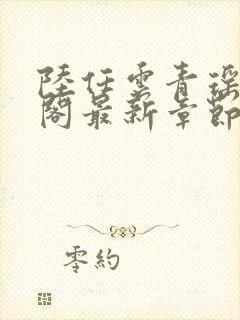 陸任雲青瑶
閣最新章節
零約